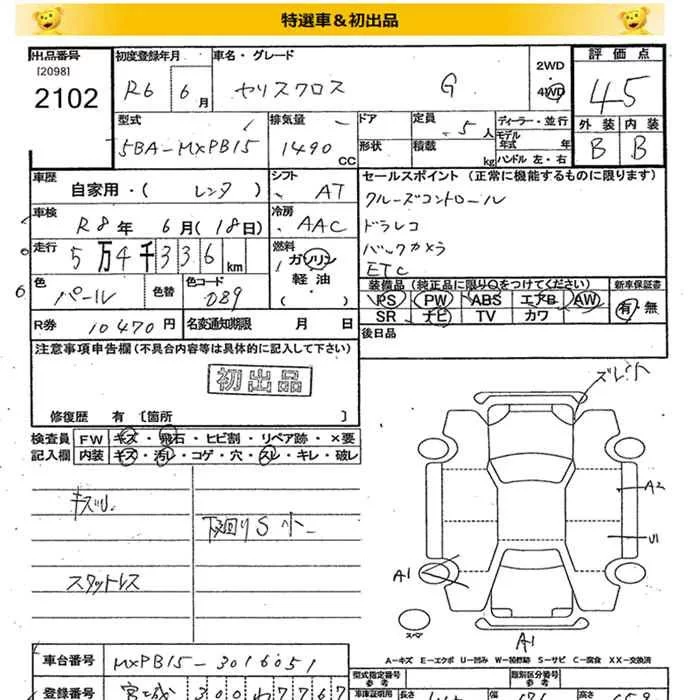 特選車＆初出品
出品番号 [2098] 2102
初度登録年月 R6 6月
車名・グレード ヤリスクロス G
2WD 4WD
評価点 45
外装 内装
B B
型式 5BA-MXPB15
排気量 1490 CC
ドア 形状
定員 5人
積載 kg
ディーラー・並行
モデル年式 年
ハンドル 左・右
車歴 自家用・( レンタ )
シフト AT
セールスポイント (正常に機能するものに限ります)
クルーズコントロール
ドラレコ
バックカメラ
ETC
車検 R8年 6月(18日)
冷房 AAC
走行 5万4千336km
燃料 ガソリン 軽油・( )
色 パール
色替
色コード 089
装備品(純正品に限り○をつけてください)
PS PW ABS エアB AW
SR ナビ TV カワ
新車保証書 有・無
R券 10470円
名変通知期限 月 日
後日品
注意事項申告欄(不具合内容等は具体的に記入して下さい)
初出品
修復歴 有 [箇所 ]
検査員 FW キズ・飛石・ヒビ割・リペア跡・×要
記入欄 内装 キズ・汚レ・コゲ・穴・スレ・キレ・破レ
スタットレス
下廻りS小
ズレ
A2
U1
A1
A1
スペア
A-キズ E-エクボ U-凹み W-補修跡 S-サビ C-腐食 XX-交換済
車台番号 MXPB15-3016051
登録番号 宮城 300 わ 7767
型式指定番号 参考
類別区分番号 参考
車庫証明用 長さ 幅 高さ